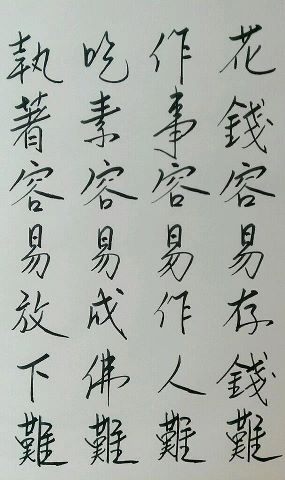 花錢容易存錢難
作事容易作人難
吃素容易成佛難
執著容易放下難